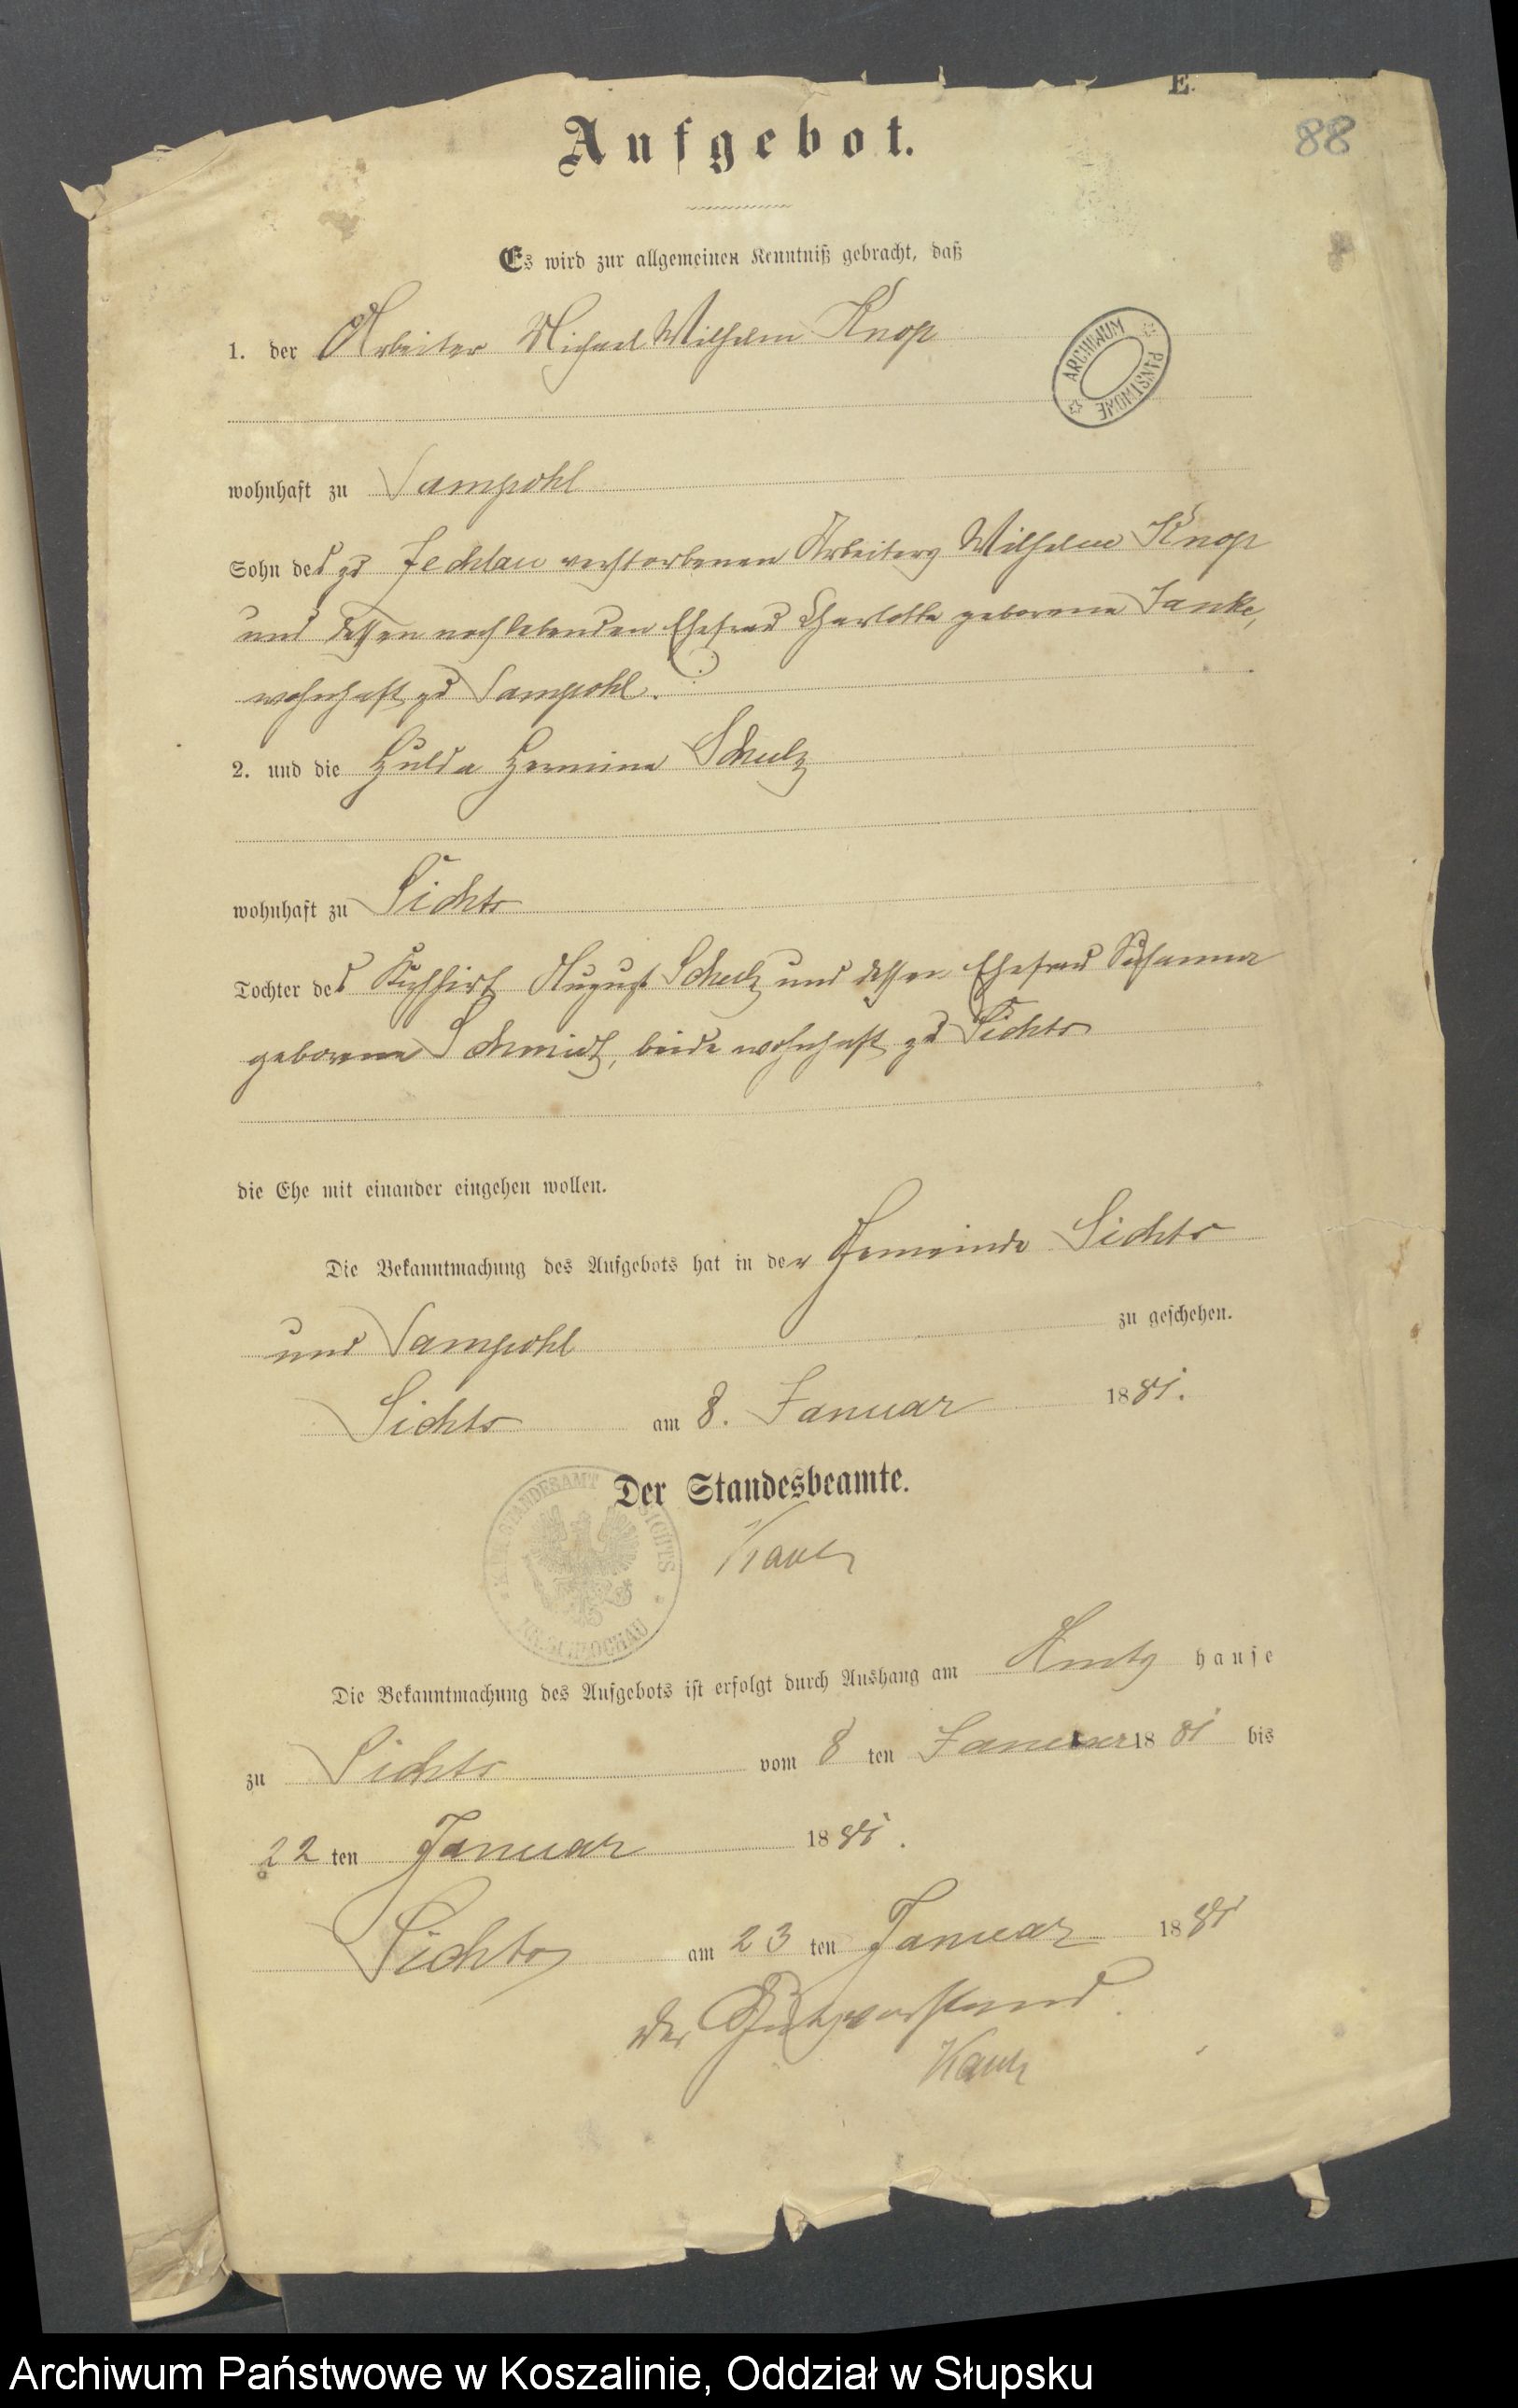 E.
88
Aufgebot.
Es wird zur allgemeinen Kenntniß gebracht, daß
1. der Arbeiter Michael Wilhelm Knop
ARCHIWUM PAŃSTWOWE
wohnhaft zu Sampohl
Sohn des zu Jechlau verstorbenen Arbeiters Wilhelm Knop
und dessen noch lebenden Ehefrau Charlotte geborene Janke,
wohnhaft zu Sampohl.
2. und die Hulda Hermine Schulz
wohnhaft zu Sichts
Tochter des Kuhhirt August Schulz und dessen Ehefrau Susanna
geborene Schmidt, beide wohnhaft zu Sichts
die Ehe mit einander eingehen wollen.
Die Bekanntmachung des Aufgebots hat in der Gemeinde Sichts
und Sampohl zu geschehen.
Sichts am 8. Januar 1881.
Der Standesbeamte.
STANDESAMT SICHTS
KR. SCHLOCHAU
Die Bekanntmachung des Aufgebots ist erfolgt durch Aushang am Amts hause
zu Sichts vom 8 ten Januar 1881 bis
22 ten Januar 1881.
Sichts am 23 ten Januar 1881
Der Gutsvorstand.
Archiwum Państwowe w Koszalinie, Oddział w Słupsku